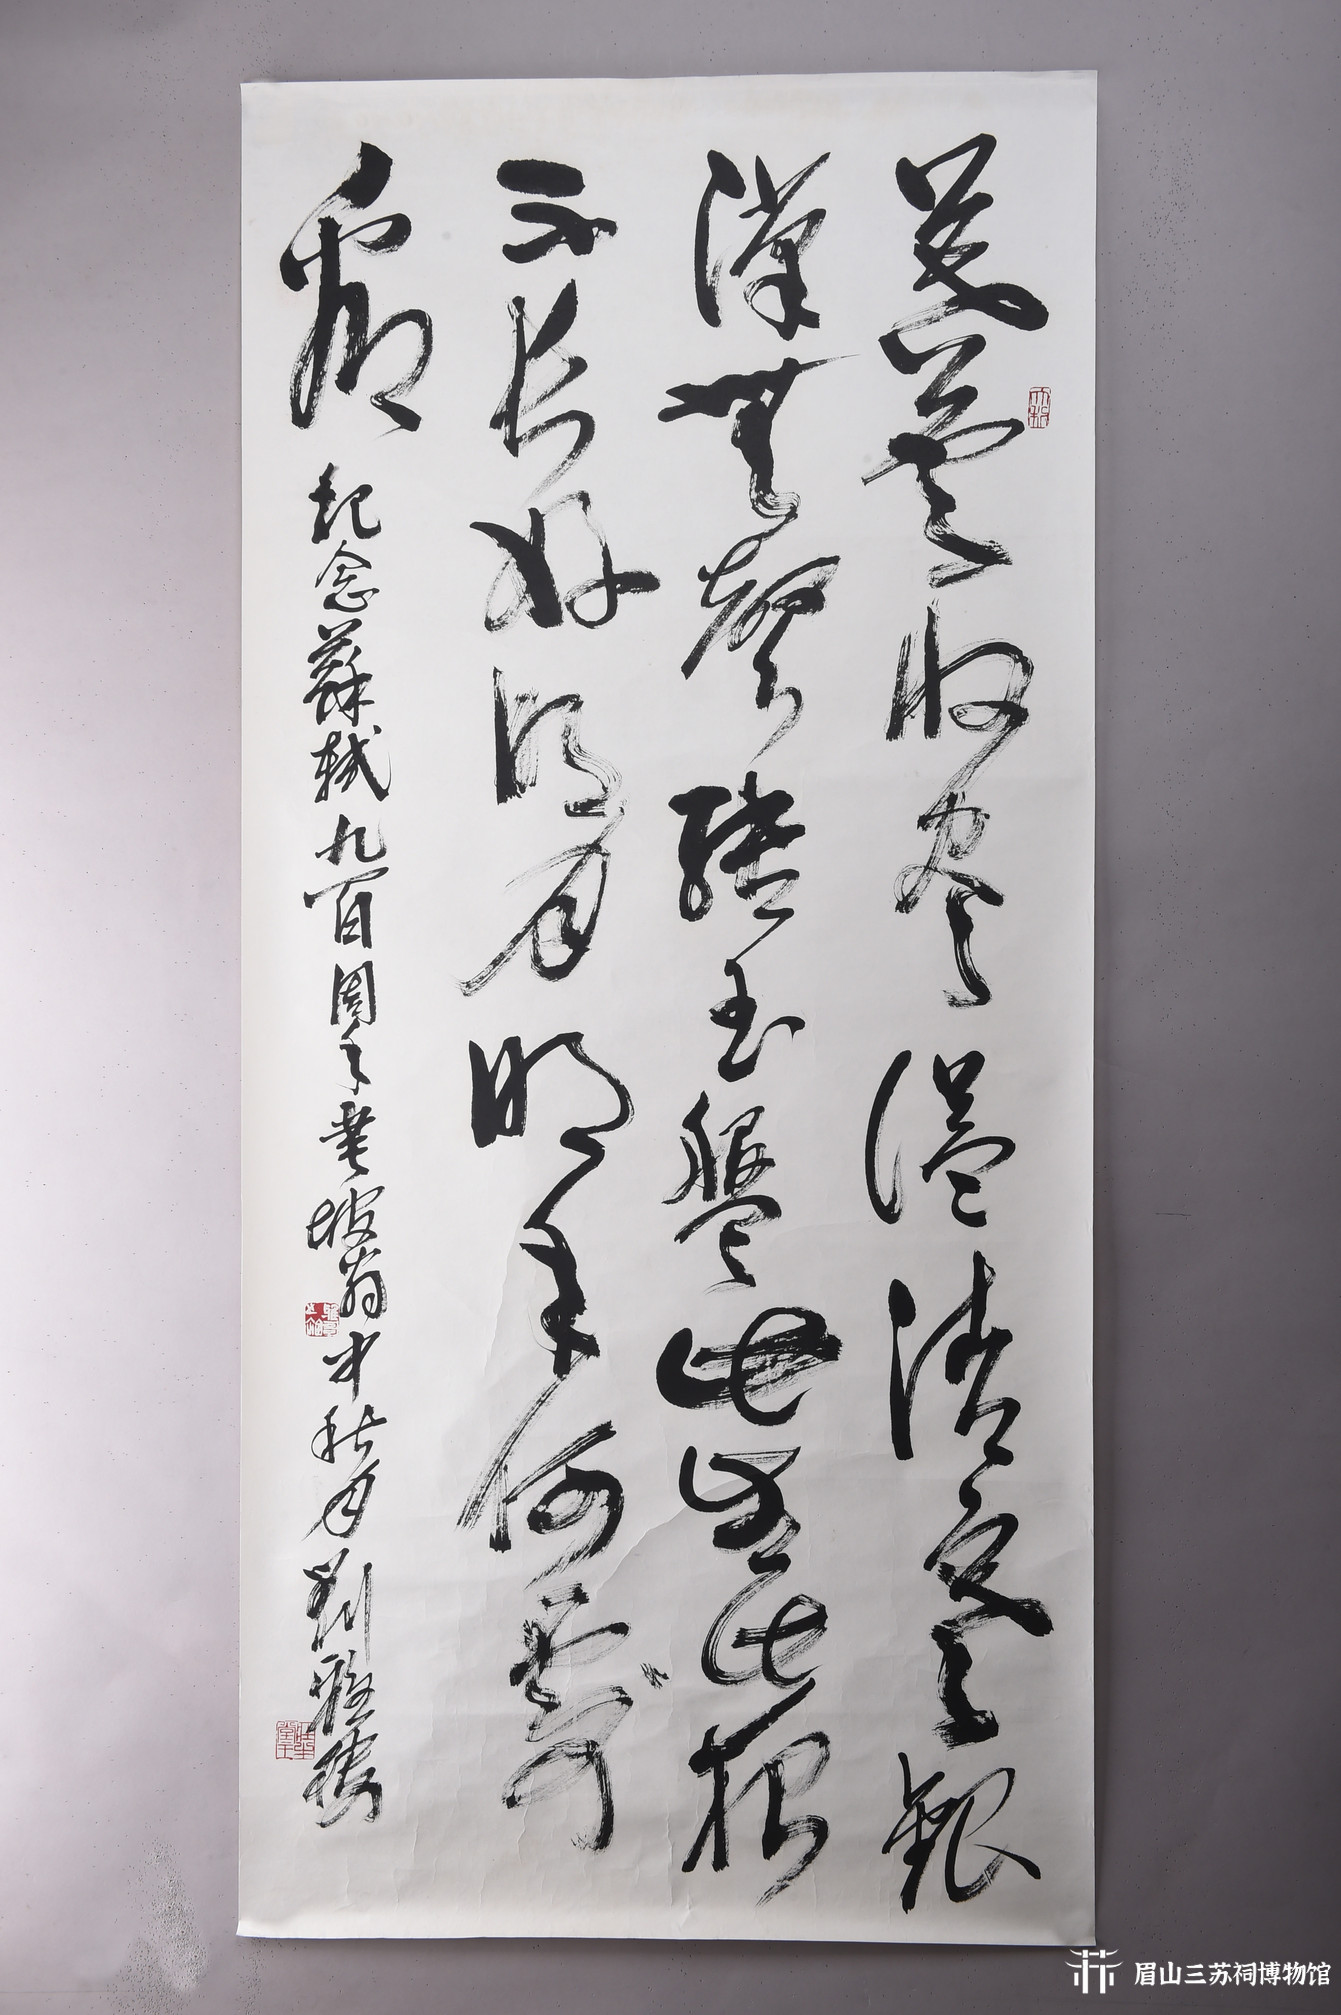 暮雲收盡溢清寒銀
漢無聲轉玉盤此生此夜
不長好明月明年何處
看
紀念蘇軾九百周年書坡翁中秋月劉
眉山三苏祠博物馆